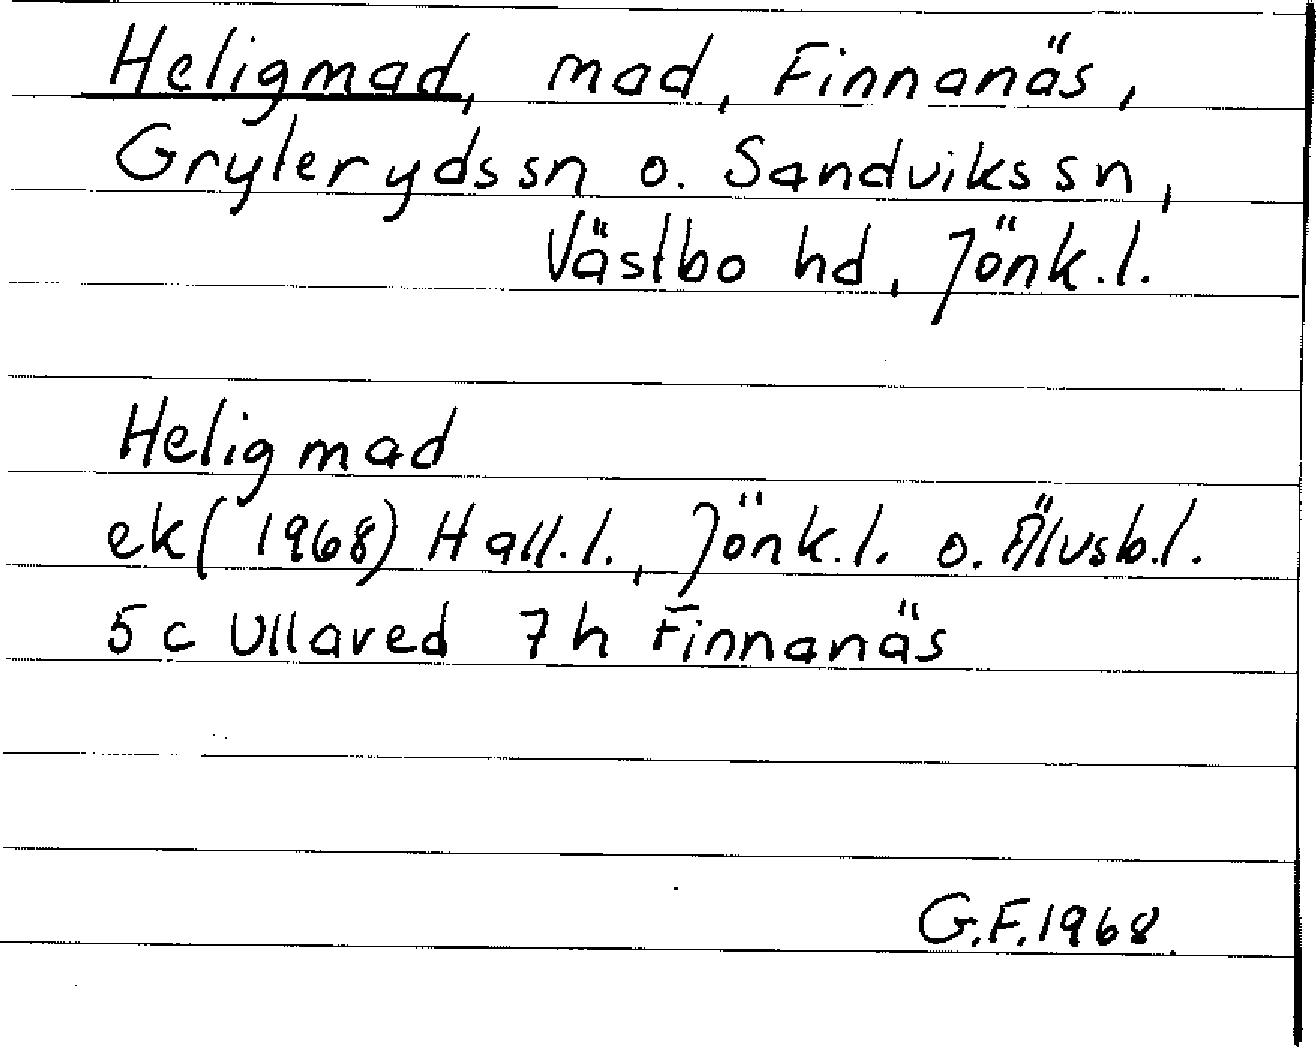 Heligmad, mad, Finnanäs,
Grylerydssn o. Sandvikssn,
Västbo hd, Jönk.l.
Heligmad
ek (1968) Hall.l., Jönk.l. o. Älvsb.l.
5c Ullaved 7h Finnanäs
G.F.1968.